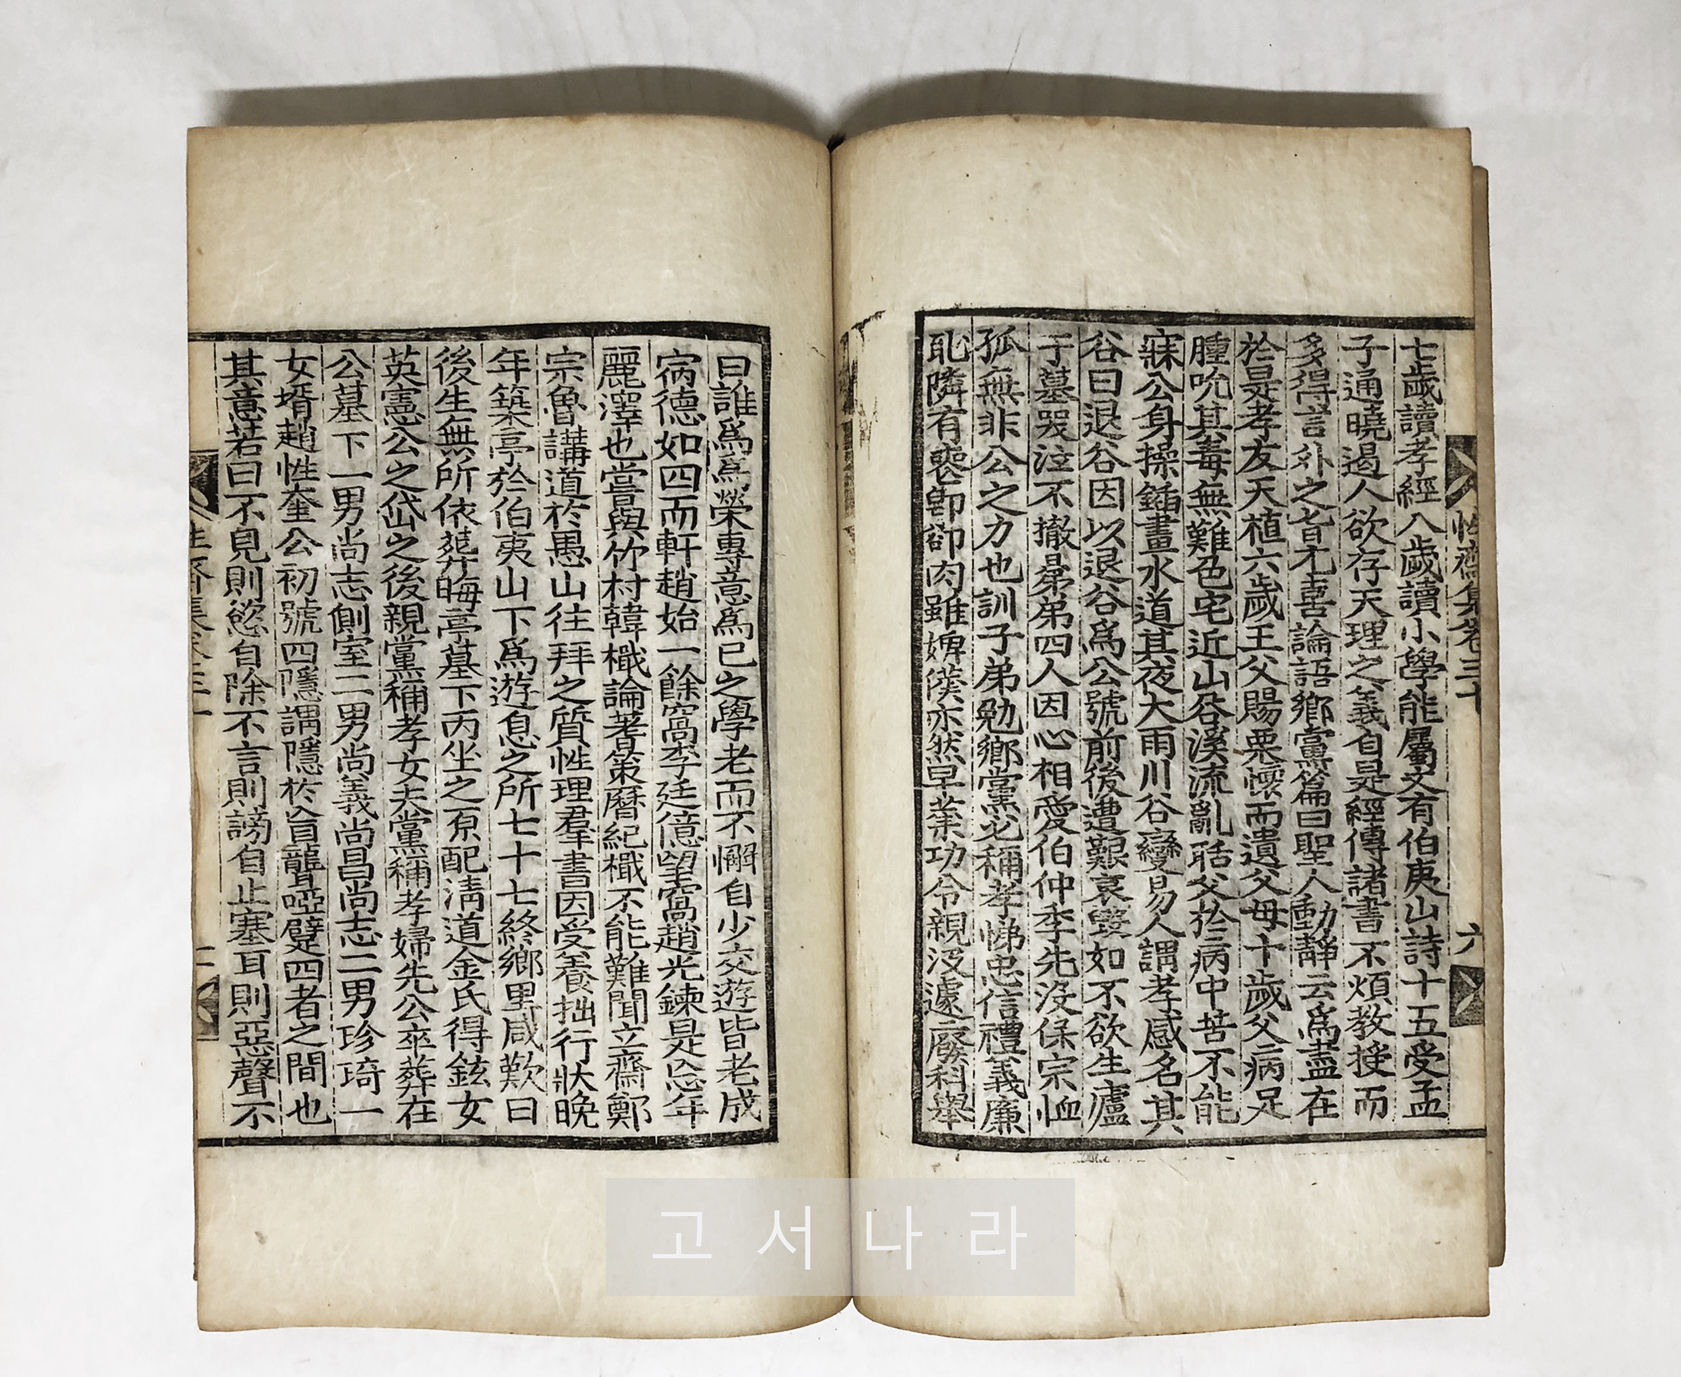 性齋集卷三十
六
七歲讀孝經八歲讀小學能屬文有伯夷山詩十五受孟
子通曉遏人欲存天理之義自是經傳諸書不煩教授而
多得言外之旨尤喜論語鄕黨篇曰聖人動靜云爲盡在
於是孝友天植六歲王父賜栗懷而遺父母十歲父病足
腫吮其毒無難色宅近山谷溪流亂聒父於病中苦不能
寐公身操鍤畫水道其夜大雨川谷變易人謂孝感名其
谷曰退谷因以退谷爲公號前後遭艱哀毀如不欲生廬
于墓哭泣不撤晜弟四人因心相愛伯仲季先沒保宗恤
孤無非公之力也訓子弟勉鄕黨必稱孝悌忠信禮義廉
恥隣有喪卽卻肉雖婢僕亦然早業功令親沒遂廢科擧
曰誰爲爲榮專意爲己之學老而不懈自少交遊皆老成
宿德如四而軒趙始一餘窩李廷億望窩趙光鍊是忘年
麗澤也嘗與竹村韓櫶論著策曆紀櫶不能難聞立齋鄭
宗魯講道於愚山往拜之質性理羣書因受養拙行狀晩
年築亭於伯夷山下爲遊息之所七十七終鄕里咸歎曰
後生無所依葬晦亭墓下丙坐之原配淸道金氏得鉉女
英憲公之岱之後親黨稱孝女夫黨稱孝婦先公卒葬在
公墓下一男尚志側室二男尚義尚昌尚志二男珍琦一
女壻趙性奎公初號四隱謂隱於盲聾啞躄四者之間也
其意若曰不見則慾自除不言則謗自止塞耳則惡聲不
고서나라